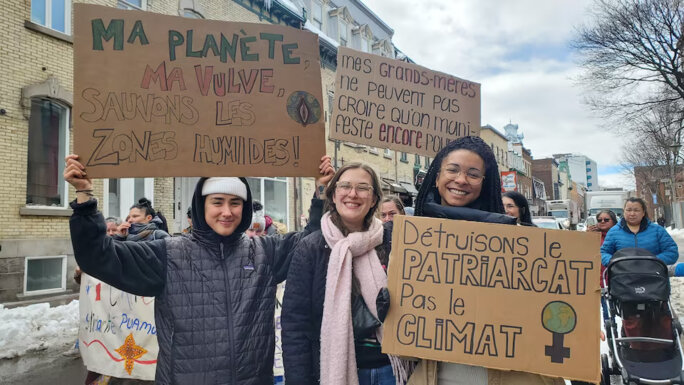 MA PLANÈTE,
MA VULVE,
SAUVONS LES
ZONES HUMIDES!
MES GRANDS-MÈRES
NE PEUVENT PAS
CROIRE QU'ON MANI-
FESTE ENCORE
Détruisons le
PATRIARCAT
Pas le
CLIMAT